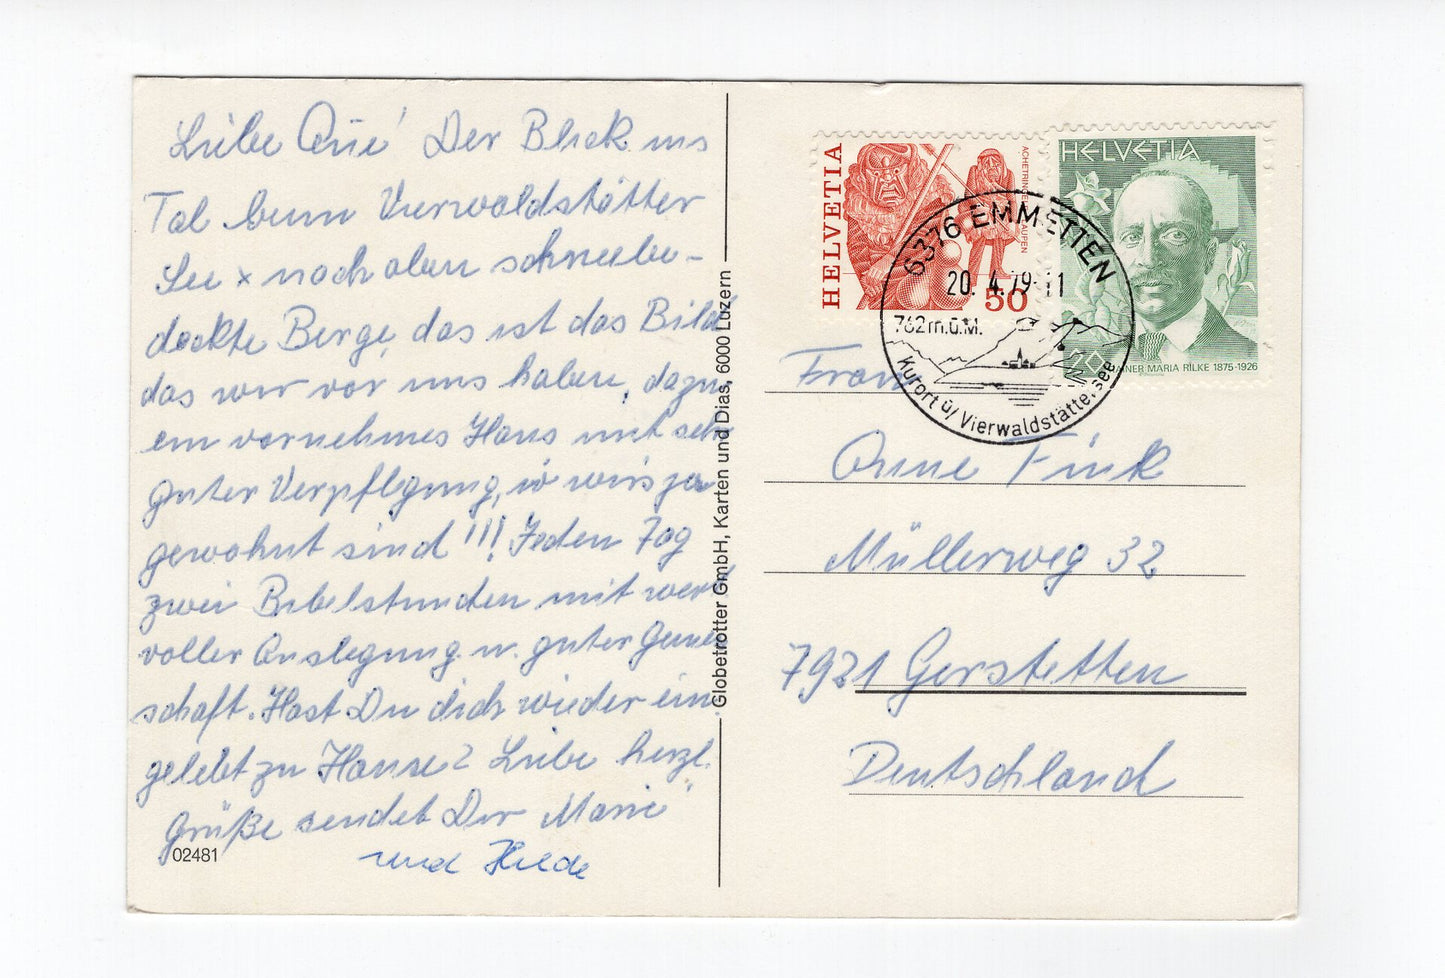 Liebe Anne! Der Blick ins
Tal beim Vierwaldstätter
See x noch oben schneebe-
deckte Berge, das ist das Bild
das wir vor uns haben, dazu
ein vornehmes Haus mit sehr
guter Verpflegung, w wir's ja
gewohnt sind!!! Jeden Tag
zwei Bibelstunden mit wert
voller Auslegung u. guter Gemein
schaft. Hast Du dich wieder ein
gelebt zu Hause? Liebe herzl.
Grüße sendet Dir Marie
und Hilde
02481
Globetrotter GmbH, Karten und Dias, 6000 Luzern
HELVETIA
ACHETRINGELER LAUPEN
50
HELVETIA
RAINER MARIA RILKE 1875-1926
6376 EMMETTEN
20. 4.79-11
762m.ü.M.
Kurort ü/Vierwaldstättersee
Frau
Anne Fink
Müllerweg 32
7921 Gerstetten
Deutschland